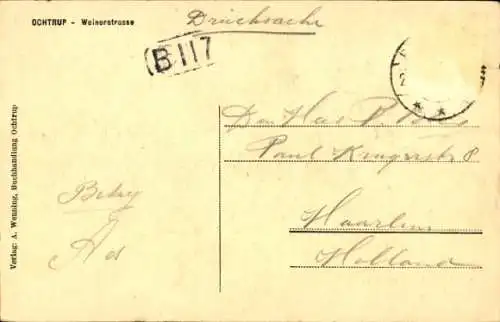 OCHTRUP - Weinerstrasse
Drucksache
B 117
Verlag: A. Wenning, Buchhandlung Ochtrup
Den Heer P.
Paul Krugerstr 8
Haarlem
Holland